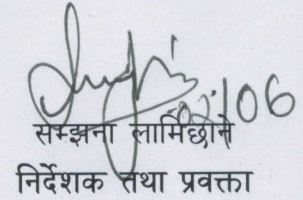 02/06
सम्झना लामिछाने
निर्देशक तथा प्रवक्ता